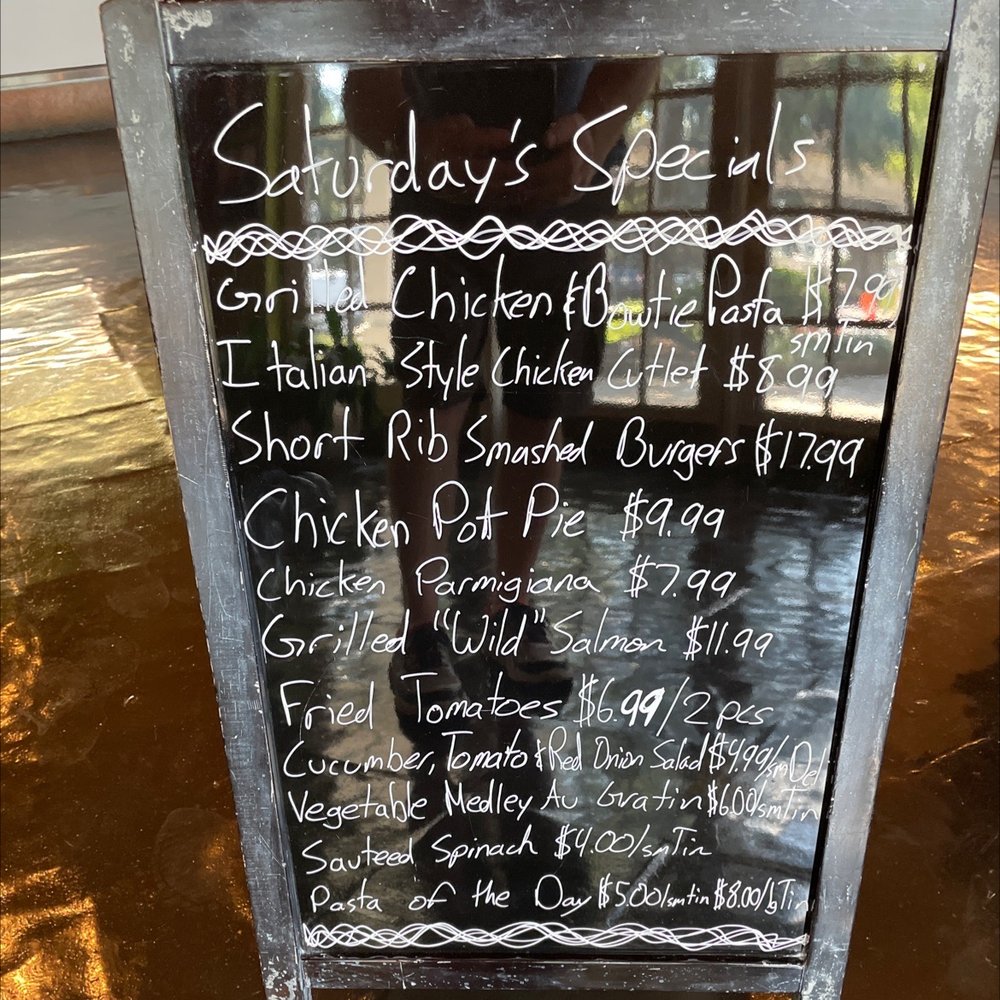 Saturday's Specials
Grilled Chicken & Bowtie Pasta $7.99
smTin
Italian Style Chicken Cutlet $8.99
Short Rib Smashed Burgers $17.99
Chicken Pot Pie $9.99
Chicken Parmigiana $7.99
Grilled "Wild" Salmon $11.99
Fried Tomatoes $6.99/2 pcs
Cucumber, Tomato & Red Onion Salad $4.99/smDel
Vegetable Medley Au Gratin $6.00/smTin
Sauteed Spinach $4.00/smTin
Pasta of the Day $5.00/smtin $8.00/lgTin